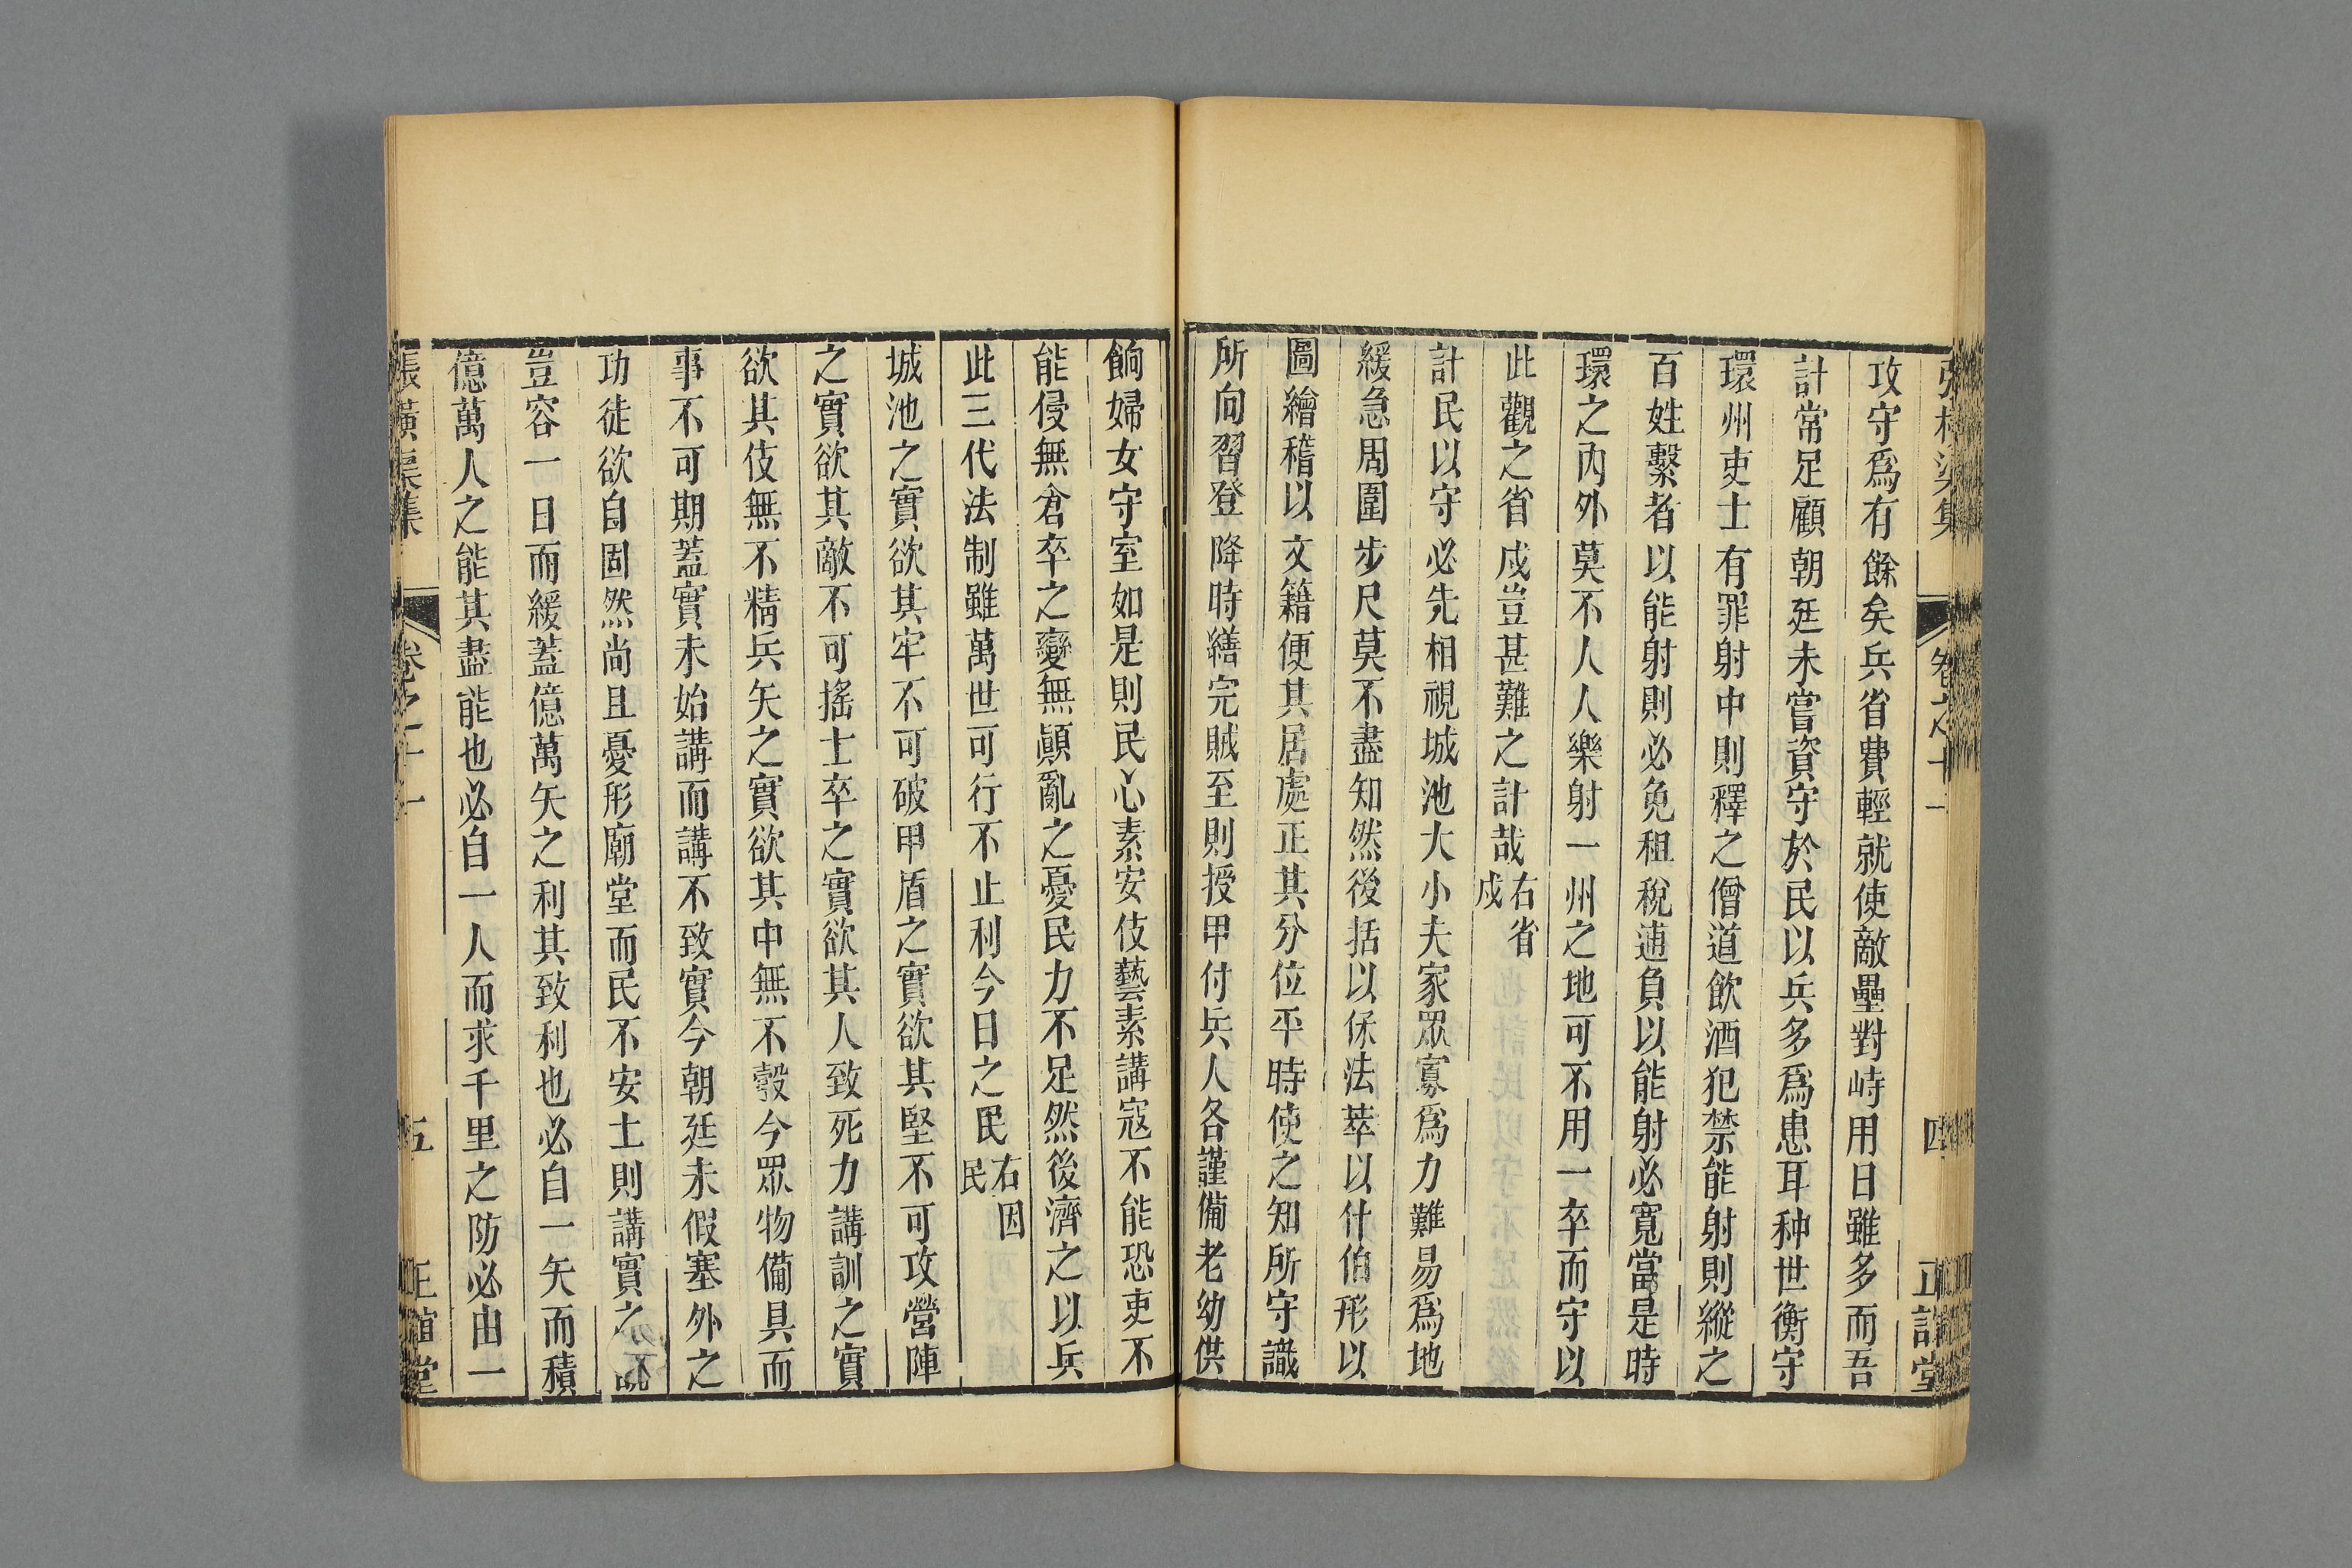 攻守爲有餘矣兵省費輕就使敵壘對峙用日雖多而吾
計常足顧朝廷未嘗資守於民以兵多爲患耳种世衡守
環州吏士有罪射中則釋之僧道飲酒犯禁能射則縱之
百姓繫者以能射則必免租稅逋負以能射必寬當是時
環之內外莫不人人樂射一州之地可不用一卒而守以
此觀之省戍豈甚難之計哉右省戍
計民以守必先相視城池大小夫家眾寡爲力難易爲地
緩急周圍步尺莫不盡知然後括以保法萃以什伯形以
圖繪稽以文籍便其居處正其分位平時使之知所守識
所向習登降時繕完賊至則授甲付兵人各謹備老幼供
餉婦女守室如是則民心素安伎藝素講寇不能恐吏不
能侵無倉卒之變無顚亂之憂民力不足然後濟之以兵
此三代法制雖萬世可行不止利今日之民右因民
城池之實欲其牢不可破甲盾之實欲其堅不可攻營陣
之實欲其敵不可搖士卒之實欲其人致死力講訓之實
欲其伎無不精兵矢之實欲其中無不彀今眾物備具而
事不可期蓋實未始講而講不致實今朝廷未假塞外之
功徒欲自固然尚且憂形廟堂而民不安土則講實之
豈容一日而緩蓋億萬矢之利其致利也必自一矢而積
億萬人之能其盡能也必自一人而求千里之防必由一
張橫渠集 卷之十一 五 正誼堂